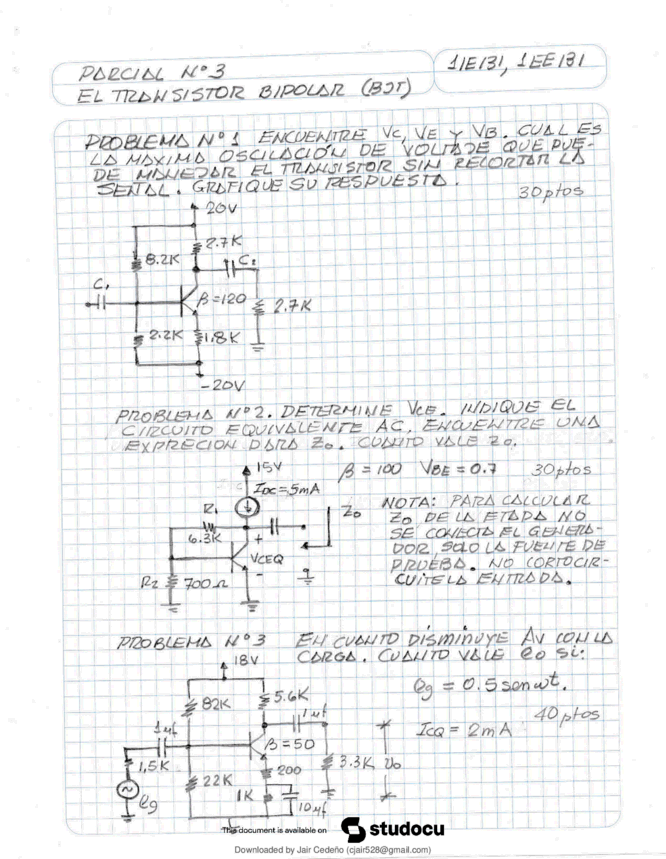 PARCIAL N°3
1IE131, 1EE131
EL TRANSISTOR BIPOLAR (BJT)
PROBLEMA N°1 ENCUENTRE VC, VE Y VB. CUAL ES
LA MAXIMA OSCILACIÓN DE VOLTAJE QUE PUE-
DE MANEJAR EL TRANSISTOR SIN RECORTAR LA
SEÑAL. GRAFIQUE SU RESPUESTA.
30ptos
20V
2.7K
8.2K
C2
C1
β=120
2.7K
2.2K
1.8K
-20V
PROBLEMA N°2. DETERMINE VCE. INDIQUE EL
CIRCUITO EQUIVALENTE AC. ENCUENTRE UNA
EXPRECION PARA Zo. CUANTO VALE Zo.
15V
β = 100 VBE = 0.7 30ptos
IDC=5mA
R1
Zo
6.3K
+
VCEQ
-
R2
700Ω
NOTA: PARA CALCULAR
Zo DE LA ETAPA NO
SE CONECTA EL GENERA-
DOR, SOLO LA FUENTE DE
PRUEBA. NO CORTOCIR-
CUITE LA ENTRADA.
PROBLEMA N°3 EN CUANTO DISMINUYE AV CON LA
CARGA. CUANTO VALE eo si:
18V
eg = 0.5 sen wt.
82K
5.6K
40 ptos
1μf
1μf
ICQ = 2mA
β=50
1,5K
200
3.3K
Vo
22K
1K
eg
10μf
This document is available on
studocu
Downloaded by Jair Cedeño (cjair528@gmail.com)